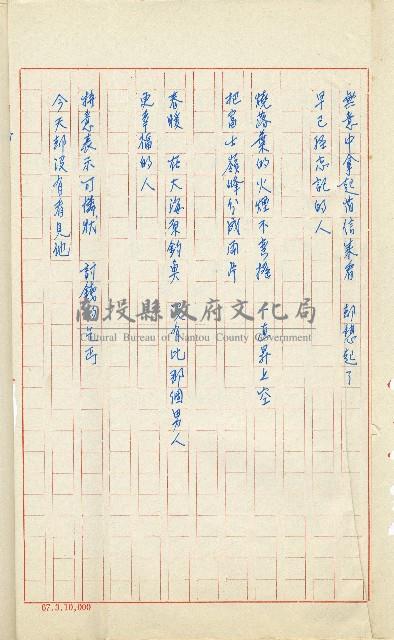 無意中拿起舊信來看 却想起了
早已經忘記的人
燒落葉的火煙不動搖 直昇上空
把富士嶺峰分成兩片
春暖 在大海原釣魚 沒有比那個男人
更幸福的人
特意表示可憐狀 討錢的乞丐
今天却沒有看見他
南投縣政府文化局
Cultural Bureau of Nantou County Government
67.3.10,000